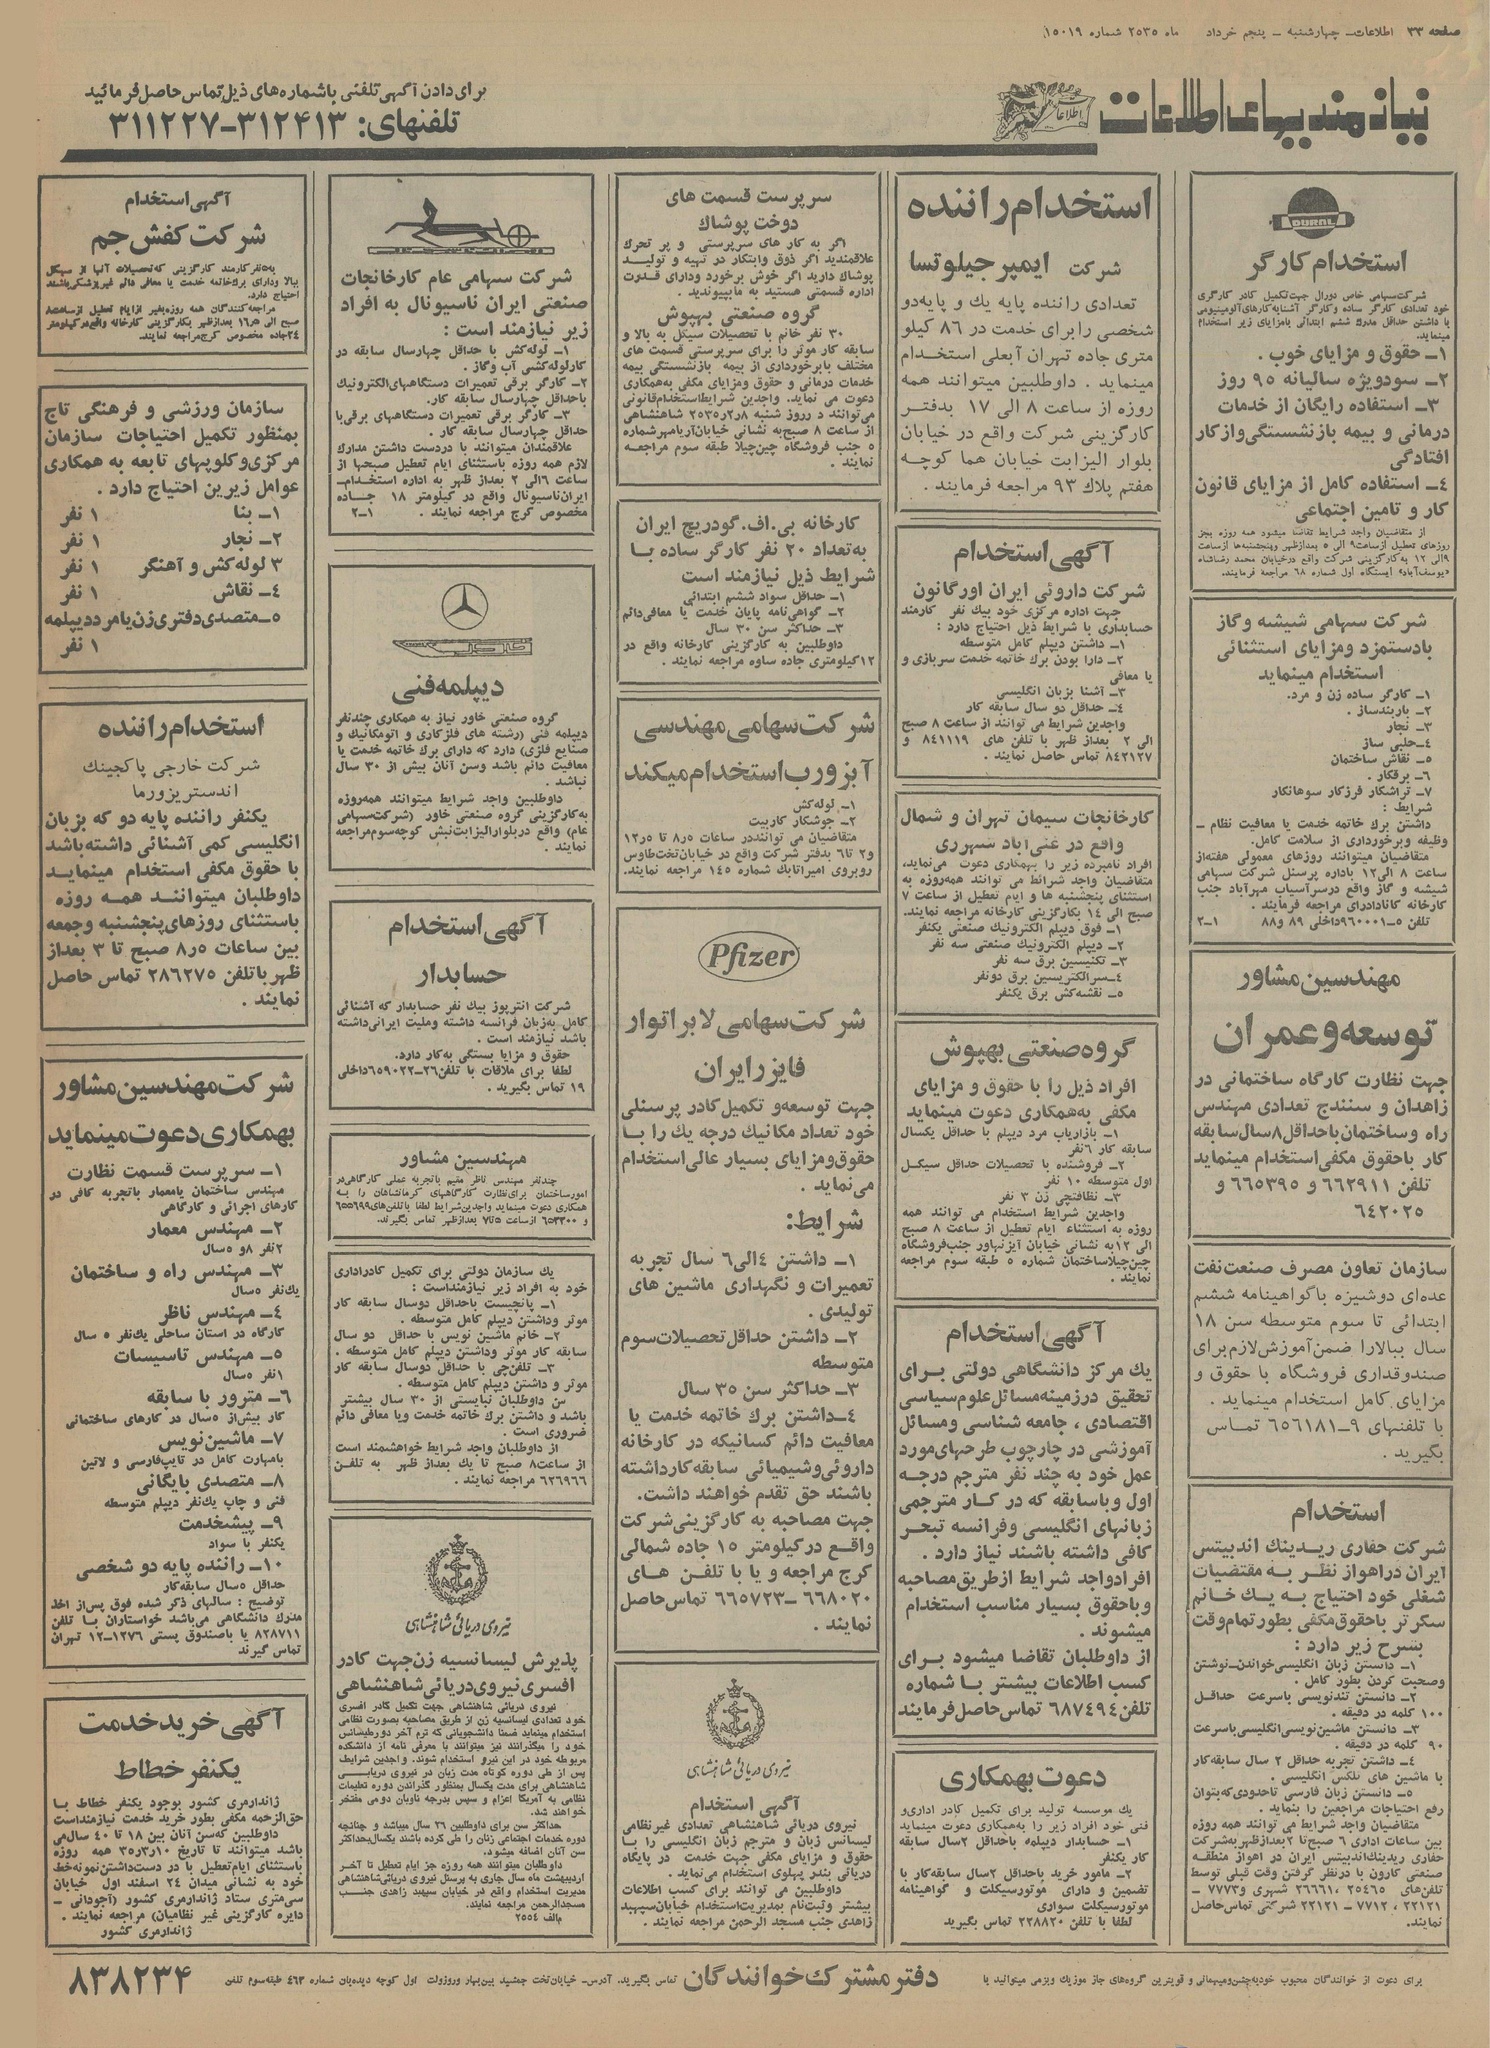 صفحه ۳۳ اطلاعات ـ چهارشنبه ـ پنجم خرداد ماه ۲۵۳۵ شماره ۱۵۰۱۹
نیازمندیهای اطلاعات
برای دادن آگهی تلفنی باشماره‌های ذیل تماس حاصل فرمائید
تلفنهای: ۳۱۲۴۱۳-۳۱۱۲۲۷
DURAL
استخدام کارگر
شرکت سهامی خاص دورال جهت تکمیل کادر کارگری
خود تعدادی کارگر ساده و کارگر آشنا به کارهای آلومینیومی
با داشتن حداقل مدرک ششم ابتدائی بامزایای زیر استخدام
مینماید.
۱ـ حقوق و مزایای خوب .
۲ـ سودویژه سالیانه ۹۵ روز
۳ـ استفاده رایگان از خدمات
درمانی و بیمه بازنشستگی وازکار
افتادگی
۴ـ استفاده کامل از مزایای قانون
کار و تامین اجتماعی
از متقاضیان واجد شرایط تقاضا میشود همه روزه بجز
روزهای تعطیل ازساعت ۹ الی ۵ بعدازظهر وپنجشنبه‌ها ازساعت
۹ الی ۱۲ به کارگزینی شرکت واقع درخیابان محمد رضاشاه
«یوسف‌آباد» ایستگاه اول شماره ۶۸ مراجعه فرمایند.
شرکت سهامی شیشه وگاز
بادستمزد ومزایای استثنائی
استخدام مینماید
۱ـ کارگر ساده زن و مرد.
۲ـ باربندساز .
۳ـ نجار
۴ـ حلبی ساز
۵ـ نقاش ساختمان
۶ـ برقکار .
۷ـ تراشکار فرزکار سوهانکار
شرایط :
داشتن برک خاتمه خدمت یا معافیت نظام ـ
وظیفه وبرخورداری از سلامت کامل.
متقاضیان میتوانند روزهای معمولی هفته از
ساعت ۸ الی ۱۲ باداره پرسنل شرکت سهامی
شیشه و گاز واقع درسرآسیاب مهرآباد جنب
کارخانه کانادادرای مراجعه فرمایند .
تلفن ۵ـ۹۶۰۰۰۱ داخلی ۸۹ و ۸۸ ۲ـ۱
مهندسین مشاور
توسعه و عمران
جهت نظارت کارگاه ساختمانی در
زاهدان و سنندج تعدادی مهندس
راه وساختمان باحداقل ۸ سال سابقه
کار باحقوق مکفی استخدام مینماید
تلفن ۶۶۲۹۱۱ و ۶۶۵۳۹۵ و
۶۴۲۰۲۵
سازمان تعاون مصرف صنعت نفت
عده‌ای دوشیزه باگواهینامه ششم
ابتدائی تا سوم متوسطه سن ۱۸
سال ببالارا ضمن آموزش لازم برای
صندوقداری فروشگاه با حقوق و
مزایای کامل استخدام مینماید .
با تلفنهای ۹ـ۶۵۶۱۸۱ تماس
بگیرید .
استخدام
شرکت حفاری ریدینک اندبیتس
ایران دراهواز نظر به مقتضیات
شغلی خود احتیاج به یک خانم
سکرتر باحقوق مکفی بطور تمام وقت
بشرح زیر دارد :
۱ـ دانستن زبان انگلیسی خواندن-نوشتن
وصحبت کردن بطور کامل .
۲ـ دانستن تندنویسی باسرعت حداقل
۱۰۰ کلمه در دقیقه .
۳ـ دانستن ماشین نویسی انگلیسی باسرعت
۹۰ کلمه در دقیقه .
۴ـ داشتن تجربه حداقل ۲ سال سابقه کار
با ماشین های تلکس انگلیسی .
۵ـ دانستن زبان فارسی تاحدودی که بتوان
رفع احتیاجات مراجعین را بنماید .
متقاضیان واجد شرایط می توانند همه روزه
بین ساعات اداری ۶ صبح تا ۲ بعدازظهر به شرکت
حفاری ریدینک اندبیتس ایران در اهواز منطقه
صنعتی کارون با درنظر گرفتن وقت قبلی توسط
تلفن‌های ۲۵۴۶۵ ، ۲۶۶۶۱ شهری و ۷۷۷۳ ـ
۲۲۱۲۱ ، ۷۷۱۲ ـ ۲۲۱۲۱ شرکتی تماس حاصل
نمایند.
استخدام راننده
شرکت ایمپرجیلوتسا
تعدادی راننده پایه یک و پایه دو
شخصی را برای خدمت در ۸۶ کیلو
متری جاده تهران آبعلی استخدام
مینماید . داوطلبین میتوانند همه
روزه از ساعت ۸ الی ۱۷ بدفتر
کارگزینی شرکت واقع در خیابان
بلوار الیزابت خیابان هما کوچه
هفتم پلاک ۹۳ مراجعه فرمایند .
آگهی استخدام
شرکت داروئی ایران اورگانون
جهت اداره مرکزی خود بیک نفر کارمند
حسابداری با شرایط ذیل احتیاج دارد :
۱ـ داشتن دیپلم کامل متوسطه
۲ـ دارا بودن برک خاتمه خدمت سربازی و
یا معافی
۳ـ آشنا بزبان انگلیسی
۴ـ حداقل دو سال سابقه کار
واجدین شرایط می توانند از ساعت ۸ صبح
الی ۲ بعداز ظهر با تلفن های ۸۴۱۱۱۹ و
۸۴۲۱۲۷ تماس حاصل نمایند .
کارخانجات سیمان تهران و شمال
واقع در غنی‌آباد شهرری
افراد نامبرده زیر را بهمکاری دعوت می‌نماید،
متقاضیان واجد شرائط می توانند همه‌روزه به
استثنای پنجشنبه ها و ایام تعطیل از ساعت ۷
صبح الی ۱۴ بکارگزینی کارخانه مراجعه نمایند.
۱ـ فوق دیپلم الکترونیک صنعتی یکنفر
۲ـ دیپلم الکترونیک صنعتی سه نفر
۳ـ تکنیسین برق سه نفر
۴ـ سرالکتریسین برق دونفر
۵ـ نقشه‌کش برق یکنفر
گروه صنعتی بهپوش
افراد ذیل را با حقوق و مزایای
مکفی به‌همکاری دعوت مینماید
۱ـ بازاریاب مرد دیپلم با حداقل یکسال
سابقه کار ۶ نفر
۲ـ فروشنده با تحصیلات حداقل سیکل
اول متوسطه ۱۰ نفر
۳ـ نظافتچی زن ۳ نفر
واجدین شرایط استخدام می توانند همه
روزه به استثناء ایام تعطیل از ساعت ۸ صبح
الی ۱۲ به نشانی خیابان آیزنهاور جنب فروشگاه
چین‌چیلا ساختمان شماره ۵ طبقه سوم مراجعه
نمایند .
آگهی استخدام
یک مرکز دانشگاهی دولتی برای
تحقیق درزمینه مسائل علوم سیاسی
اقتصادی ، جامعه شناسی ومسائل
آموزشی در چارچوب طرحهای مورد
عمل خود به چند نفر مترجم درجه
اول وباسابقه که در کار مترجمی
زبانهای انگلیسی وفرانسه تبحر
کافی داشته باشند نیاز دارد .
افراد واجد شرایط ازطریق مصاحبه
وباحقوق بسیار مناسب استخدام
میشوند .
از داوطلبان تقاضا میشود برای
کسب اطلاعات بیشتر با شماره
تلفن ۶۸۷۴۹۴ تماس حاصل فرمایند
دعوت بهمکاری
یک موسسه تولید برای تکمیل کادر اداری و
فنی خود افراد زیر را به‌همکاری دعوت مینماید
۱ـ حسابدار دیپلمه باحداقل ۲ سال سابقه
کار یکنفر
۲ـ مامور خرید باحداقل ۲ سال سابقه کار با
تضمین و دارای موتورسیکلت و گواهینامه
موتورسیکلت سواری
لطفا با تلفن ۲۲۸۸۲۰ تماس بگیرید
سرپرست قسمت های
دوخت پوشاک
اگر به کار های سرپرستی و پر تحرک
علاقمندید اگر ذوق وابتکار در تهیه و تولید
پوشاک دارید اگر خوش برخورد ودارای قدرت
اداره قسمتی هستید به مابپیوندید .
گروه صنعتی بهپوش
۳۰ نفر خانم با تحصیلات سیکل به بالا و
سابقه کار موثر را برای سرپرستی قسمت های
مختلف بابرخورداری از بیمه بازنشستگی بیمه
خدمات درمانی و حقوق ومزایای مکفی به‌همکاری
دعوت می نماید. واجدین شرایط استخدام قانونی
می‌توانند د روز شنبه ۸ر۳ر۲۵۳۵ شاهنشاهی
از ساعت ۸ صبح به نشانی خیابان آریامهر شماره
۵ جنب فروشگاه چین‌چیلا طبقه سوم مراجعه
نمایند .
کارخانه بی.اف.گودریچ ایران
به‌تعداد ۲۰ نفر کارگر ساده با
شرایط ذیل نیازمند است
۱ـ حداقل سواد ششم ابتدائی
۲ـ گواهی‌نامه پایان خدمت یا معافی دائم
۳ـ حداکثر سن ۳۰ سال
داوطلبین به کارگزینی کارخانه واقع در
۱۲ کیلومتری جاده ساوه مراجعه نمایند .
شرکت سهامی مهندسی
آبزورب استخدام میکند
۱ـ لوله‌کش
۲ـ جوشکار کاربیت
متقاضیان می توانند در ساعات ۸ر۵ تا ۱۲ر۵
و ۲ تا ۶ بدفتر شرکت واقع در خیابان تخت‌طاوس
روبروی امیراتابک شماره ۱۴۵ مراجعه نمایند.
Pfizer
شرکت سهامی لابراتوار
فایزر ایران
جهت توسعه و تکمیل کادر پرسنلی
خود تعداد مکانیک درجه یک را با
حقوق و مزایای بسیار عالی استخدام
می‌نماید .
شرایط:
۱ـ داشتن ۴ الی ۶ سال تجربه
تعمیرات و نگهداری ماشین های
تولیدی .
۲ـ داشتن حداقل تحصیلات سوم
متوسطه
۳ـ حداکثر سن ۳۵ سال
۴ـ داشتن برک خاتمه خدمت یا
معافیت دائم کسانیکه در کارخانه
داروئی وشیمیائی سابقه کار داشته
باشند حق تقدم خواهند داشت.
جهت مصاحبه به کارگزینی شرکت
واقع درکیلومتر ۱۵ جاده شمالی
کرج مراجعه و یا با تلفن های
۶۶۸۰۲۰ ـ ۶۶۵۷۲۳ تماس حاصل
نمایند .
نیروی دریائی شاهنشاهی
آگهی استخدام
نیروی دریائی شاهنشاهی تعدادی غیرنظامی
لیسانس زبان و مترجم زبان انگلیسی را با
حقوق و مزایای مکفی جهت خدمت در پایگاه
دریائی بندر پهلوی استخدام می‌نماید .
داوطلبین می توانند برای کسب اطلاعات
بیشتر وثبت‌نام بمدیریت استخدام خیابان سپهبد
زاهدی جنب مسجد الرحمن مراجعه نمایند .
شرکت سهامی عام کارخانجات
صنعتی ایران ناسیونال به افراد
زیر نیازمند است :
۱ـ لوله‌کش با حداقل چهارسال سابقه در
کار لوله‌کشی آب وگاز .
۲ـ کارگر برقی تعمیرات دستگاههای الکترونیک
باحداقل چهارسال سابقه کار.
۳ـ کارگر برقی تعمیرات دستگاههای برقی با
حداقل چهارسال سابقه کار .
علاقمندان میتوانند با دردست داشتن مدارک
لازم همه روزه باستثنای ایام تعطیل صبحها از
ساعت ۶ الی ۲ بعداز ظهر به اداره استخدام ـ
ایران‌ناسیونال واقع در کیلومتر ۱۸ جاده
مخصوص کرج مراجعه نمایند . ۲ـ۱
خاور
دیپلمه فنی
گروه صنعتی خاور نیاز به همکاری چندنفر
دیپلمه فنی (رشته های فلزکاری و اتومکانیک و
صنایع فلزی) دارد که دارای برک خاتمه خدمت یا
معافیت دائم باشد وسن آنان بیش از ۳۰ سال
نباشد .
داوطلبین واجد شرایط میتوانند همه‌روزه
به‌کارگزینی گروه صنعتی خاور (شرکت سهامی
عام) واقع دربلوار الیزابت نبش کوچه سوم مراجعه
نمایند .
آگهی استخدام
حسابدار
شرکت انترپوز بیک نفر حسابدار که آشنائی
کامل به‌زبان فرانسه داشته وملیت ایرانی داشته
باشد نیازمند است .
حقوق و مزایا بستگی به‌کار دارد.
لطفا برای ملاقات با تلفن ۲۶ـ۶۵۹۰۲۲ داخلی
۱۹ تماس بگیرید .
مهندسین مشاور
چندنفر مهندس ناظر مقیم باتجربه عملی کارگاهی در
امور ساختمان برای نظارت کارگاههای کرمانشاهان را به
همکاری دعوت مینماید واجدین شرایط لطفا با تلفن‌های ۶۵۵۶۹۹
و ۶۵۳۳۰۰ ازساعت ۵تا۷ بعدازظهر تماس بگیرند.
یک سازمان دولتی برای تکمیل کادر اداری
خود به افراد زیر نیازمند است :
۱ـ پانچیست باحداقل دوسال سابقه کار
موثر وداشتن دیپلم کامل متوسطه .
۲ـ خانم ماشین نویس با حداقل دو سال
سابقه کار موثر وداشتن دیپلم کامل متوسطه .
۳ـ تلفن‌چی با حداقل دوسال سابقه کار
موثر و داشتن دیپلم کامل متوسطه .
سن داوطلبان نبایستی از ۳۰ سال بیشتر
باشد و داشتن برک خاتمه خدمت ویا معافی دائم
ضروری است .
از داوطلبان واجد شرایط خواهشمند است
از ساعت ۸ صبح تا یک بعداز ظهر به تلفن
۶۲۶۹۶۶ مراجعه نمایند .
نیروی دریائی شاهنشاهی
پذیرش لیسانسیه زن جهت کادر
افسری نیروی دریائی شاهنشاهی
نیروی دریائی شاهنشاهی جهت تکمیل کادر افسری
خود تعدادی لیسانسیه زن از طریق مصاحبه بصورت نظامی
استخدام مینماید ضمنا دانشجویانی که ترم آخر دوره لیسانس
خود را میگذرانند نیز میتوانند با معرفی نامه از دانشکده
مربوطه خود در این نیرو استخدام شوند. واجدین شرایط
پس از طی دوره کوتاه مدت زبان در نیروی دریایی
شاهنشاهی برای مدت یکسال بمنظور گذراندن دوره تعلیمات
نظامی به آمریکا اعزام و سپس بدرجه ناوبان دومی مفتخر
خواهند شد.
حداکثر سن برای داوطلبین ۲۶ سال میباشد و چنانچه
دوره خدمات اجتماعی زنان را طی کرده باشند یکسال بحداکثر
سن آنان اضافه میشود.
داوطلبان میتوانند همه روزه جز ایام تعطیل تا آخر
اردیبهشت ماه سال جاری به پرسنل نیروی دریائی شاهنشاهی
مدیریت استخدام واقع در خیابان سپهبد زاهدی جنب
مسجدالرحمن مراجعه نمایند.
م الف ۲۵۵۴
آگهی استخدام
شرکت کفش جم
به ۵ نفر کارمند کارگزینی که تحصیلات آنها از سیکل
ببالا ودارای برک خاتمه خدمت یا معافی دائم غیرپزشکی باشند
احتیاج دارد.
مراجعه‌کنندگان همه روزه بغیر ازایام تعطیل ازساعت ۸
صبح الی ۱۶ر بعدازظهر بکارگزینی کارخانه واقع در کیلومتر
۲۴ جاده مخصوص کرج مراجعه نمایند.
سازمان ورزشی و فرهنگی تاج
بمنظور تکمیل احتیاجات سازمان
مرکزی و کلوپهای تابعه به همکاری
عوامل زیرین احتیاج دارد .
۱ـ بنا ۱ نفر
۲ـ نجار ۱ نفر
۳ لوله‌کش و آهنگر ۱ نفر
۴ـ نقاش ۱ نفر
۵ـ متصدی دفتری زن یا مرد دیپلمه
۱ نفر
استخدام راننده
شرکت خارجی پاکجینک
اندستریزورما
یکنفر راننده پایه دو که بزبان
انگلیسی کمی آشنائی داشته باشد
با حقوق مکفی استخدام مینماید
داوطلبان میتوانند همه روزه
باستثنای روزهای پنجشنبه وجمعه
بین ساعات ۸ر۵ صبح تا ۳ بعداز
ظهر باتلفن ۲۸۶۲۷۵ تماس حاصل
نمایند .
شرکت مهندسین مشاور
بهمکاری دعوت مینماید
۱ـ سرپرست قسمت نظارت
مهندس ساختمان یامعمار باتجربه کافی در
کارهای اجرائی و کارگاهی
۲ـ مهندس معمار
۲ نفر ۸ و ۵ سال
۳ـ مهندس راه و ساختمان
یک‌نفر ۵ سال
۴ـ مهندس ناظر
کارگاه در استان ساحلی یک‌نفر ۵ سال
۵ـ مهندس تاسیسات
۱ نفر ۵ سال
۶ـ مترور با سابقه
کار بیش از ۵ سال در کارهای ساختمانی
۷ـ ماشین نویس
بامهارت کامل در تایپ فارسی و لاتین
۸ـ متصدی بایگانی
فنی و چاپ یک‌نفر دیپلم متوسطه
۹ـ پیشخدمت
یکنفر با سواد
۱۰ـ راننده پایه دو شخصی
حداقل ۵ سال سابقه کار
توضیح : سالهای ذکر شده فوق پس از اخذ
مدرک دانشگاهی می‌باشد خواستاران با تلفن
۸۲۸۷۱۱ یا باصندوق پستی ۱۲۷۶ـ۱۲ تهران
تماس گیرند
آگهی خرید خدمت
یکنفر خطاط
ژاندارمری کشور بوجود یکنفر خطاط با
حق‌الزحمه مکفی بطور خرید خدمت نیازمند است
داوطلبین که سن آنان بین ۱۸ تا ۴۰ سال می
باشد میتوانند تا تاریخ ۱۰ر۳ر۳۵ همه روزه
باستثنای ایام تعطیل با در دست داشتن نمونه خط
خود به نشانی میدان ۲۴ اسفند اول خیابان
سی‌متری ستاد ژاندارمری کشور (آجودانی ـ
دایره کارگزینی غیر نظامیان) مراجعه نمایند .
ژاندارمری کشور
برای دعوت از خوانندگان محبوب خود به جشن و میهمانی و قویترین گروه‌های جاز موزیک وبزمی میتوانید با دفتر مشترک خوانندگان تماس بگیرید. آدرس ـ خیابان تخت جمشید بین بهار وروزولت اول کوچه دیده‌بان شماره ۴۶۳ طبقه سوم تلفن ۸۳۸۲۳۴